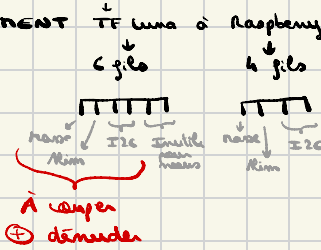 MENT TF Luna à Raspberry
6 fils 4 fils
masse Alim I2C Inutile pour nous masse Alim I2C
À couper
+ dénuder